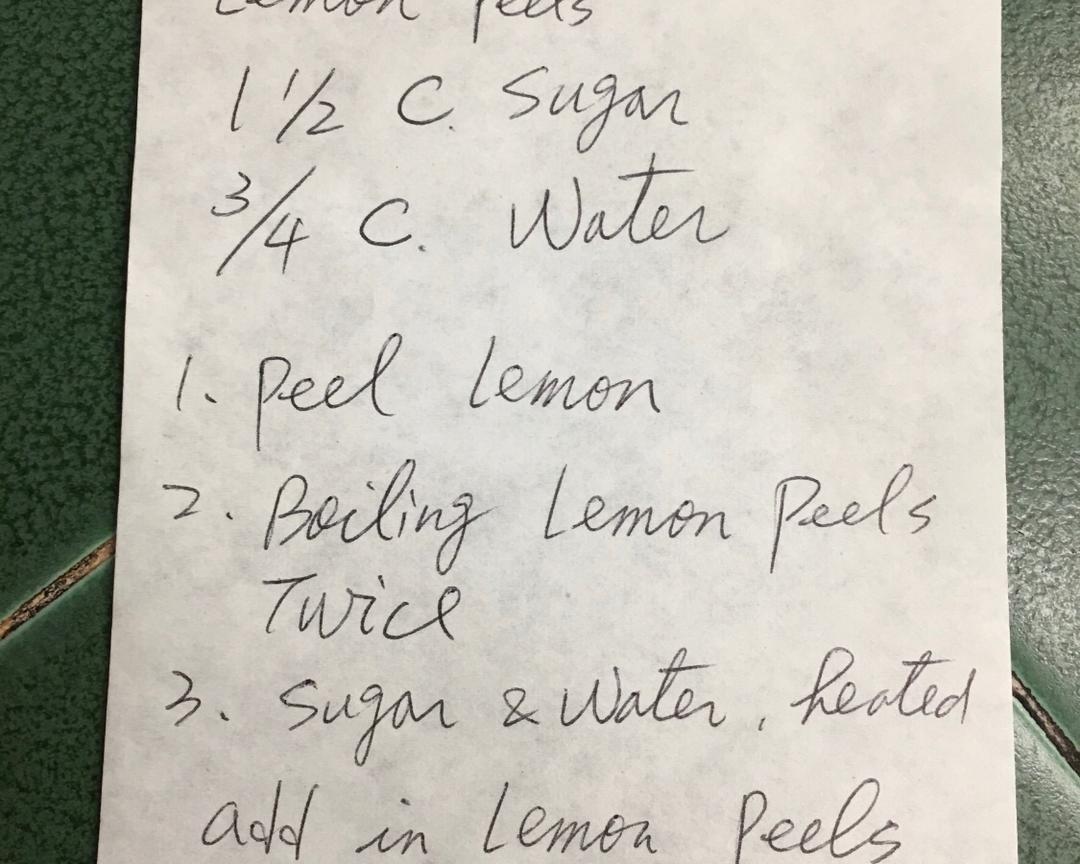 Lemon Peels
1 1/2 C. Sugar
3/4 C. Water
1. Peel Lemon
2. Boiling Lemon Peels
Twice
3. Sugar & Water, heated
add in Lemon Peels